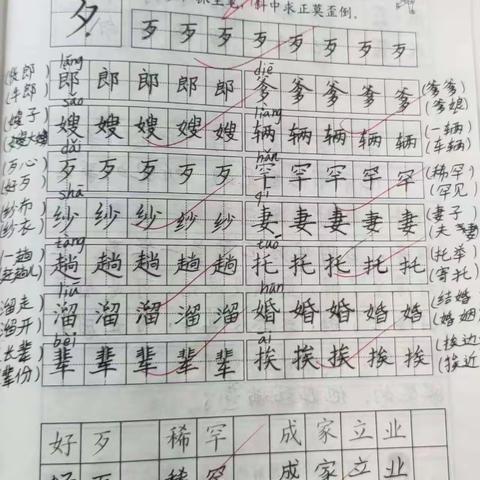 斜中求正莫歪倒.
夕 歹 歹 歹 歹 歹 歹 歹 歹
láng diē
郎) 郎 郎 郎 郎 郎 爹 爹 爹 爹 爹 (爹爹)
牛郎) (爹娘)
sǎo liàng
嫂子) 嫂 嫂 嫂 嫂 嫂 辆 辆 辆 辆 辆 (一辆)
大嫂) (车辆)
dǎi hǎn
歹心) 歹 歹 歹 歹 歹 罕 罕 罕 罕 罕 (稀罕)
好歹) (罕见)
shā qī
纱布) 纱 纱 纱 纱 纱 妻 妻 妻 妻 妻 (妻子)
纱衣) (夫妻)
tàng tuō
一趟) 趟 趟 趟 趟 趟 托 托 托 托 托 (托举)
(寄托)
liū hūn
溜走) 溜 溜 溜 溜 溜 婚 婚 婚 婚 婚 (结婚)
溜开) (婚姻)
bèi āi
长辈) 辈 辈 辈 辈 辈 挨 挨 挨 挨 挨 (挨边)
辈份) (挨近)
好 歹 稀 罕 成 家 立 业
好 歹 稀 罕 成 家 立 业